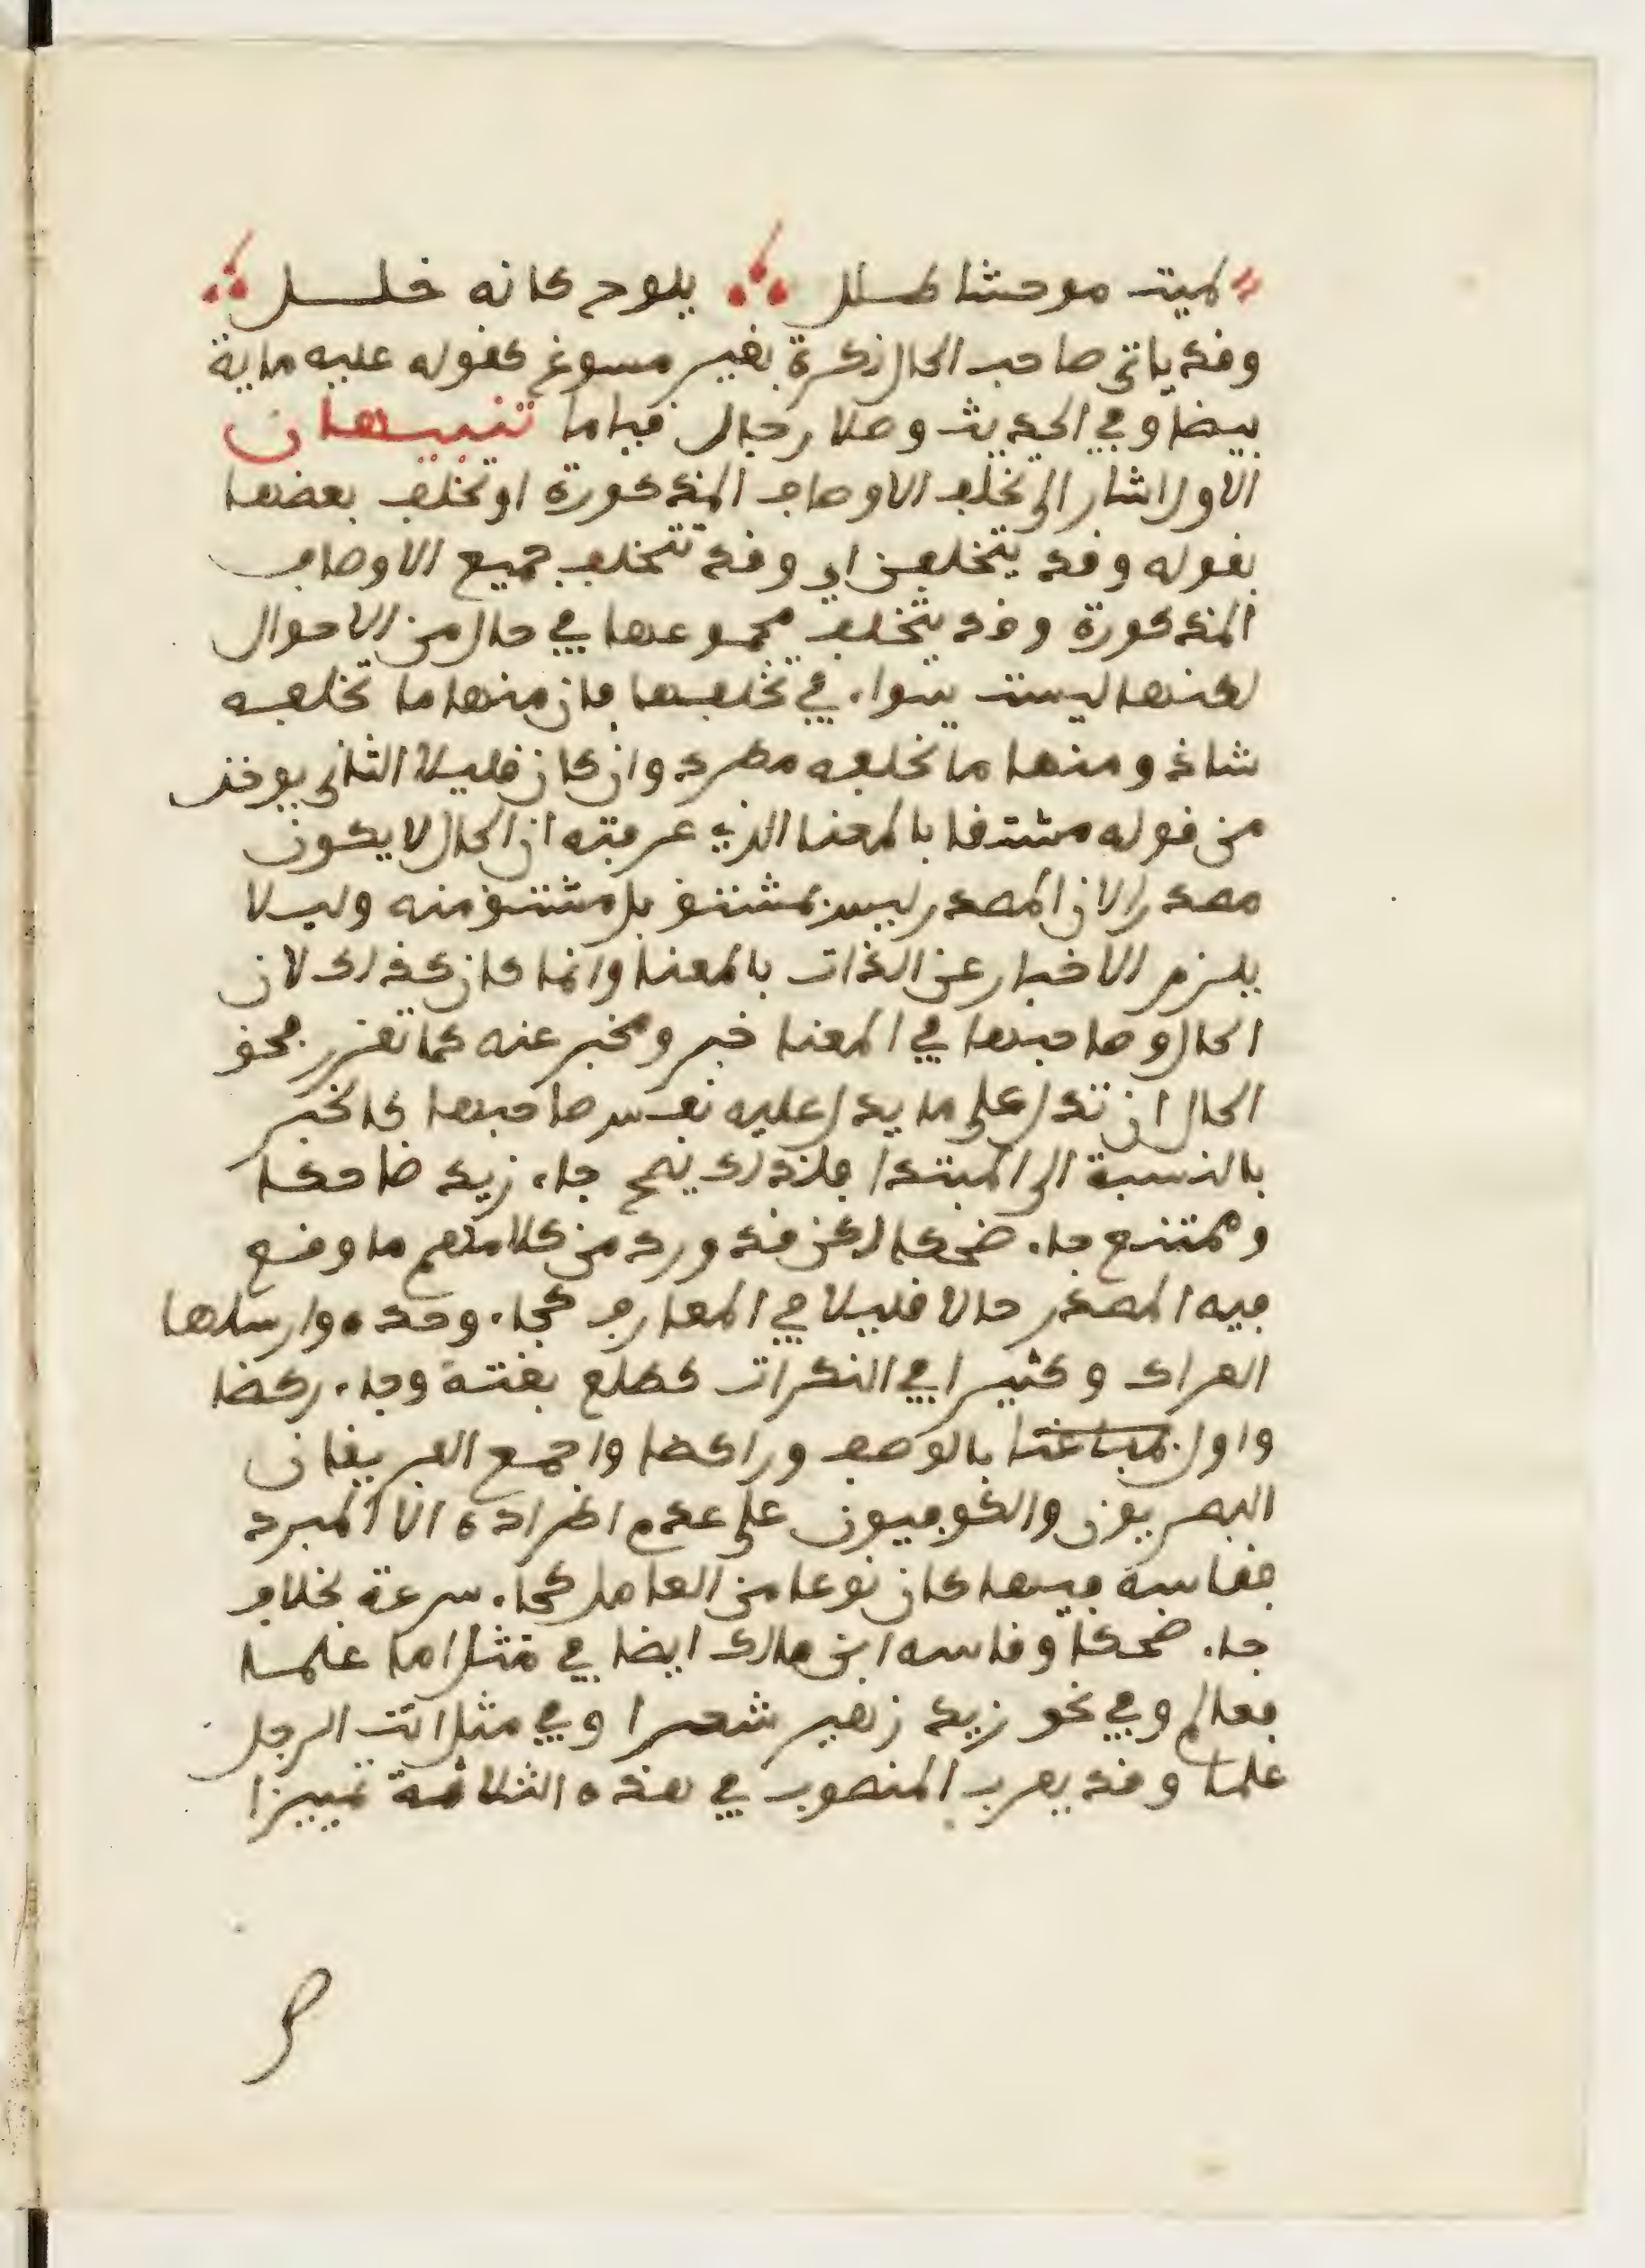 لميت موحشا طلل يلوح كانه خلل
وقد ياتى صاحب الحال نكرة بغير مسوغ كقوله عليه ماية
بيضا وفي الحديث وصلا رجال قياما تنبيهان
الاول اشار الى تخلف الاوصاف المذكورة او تخلف بعضها
بقوله وقد يتخلفن اي وقد تتخلف جميع الاوصاف
المذكورة وقد يتخلف مجموعها في حال من الاحوال
لكنها ليست سوا، في تخلفها فان منها ما تخلفه
شاذ ومنها ما تخلفه مطرد وان كان قليلا الثانى يوخذ
من قوله مشتقا بالمعنا الذي عرفته ان الحال لا يكون
مصدرا لان المصدر ليس بمشتق بل مشتق منه وليلا
يلزم الاخبار عن الذات بالمعنا وانما كان كذلك لان
الحال وصاحبها في المعنا خبر ومخبر عنه كما تقرر فحق
الحال ان تدل على ما يدل عليه نفس صاحبها كالخبر
بالنسبة الى المبتدا فلذلك يصح جا، زيد ضاحكا
وممتنع جا، ضحكا لكن قد ورد من كلامهم ما وقع
فيه المصدر حالا قليلا في المعارف كجا، وحده وارسلها
العراك وكثيرا في النكرات كطلع بغتة وجا، ركضا
واول بالوصف وراكضا واجمع الفريقان
البصريون والكوفيون على عدم اطراده الا المبرد
فقاسه فيما كان نوعا من العامل كجا، سرعة بخلاف
جا، ضحكا وقاسه ابن مالك ايضا في مثل اما علما
فعالم وفي نحو زيد زهير شعرا وفي مثل انت الرجل
علما وقد يعرب المنصوب في هذه الثلاثة تمييزا